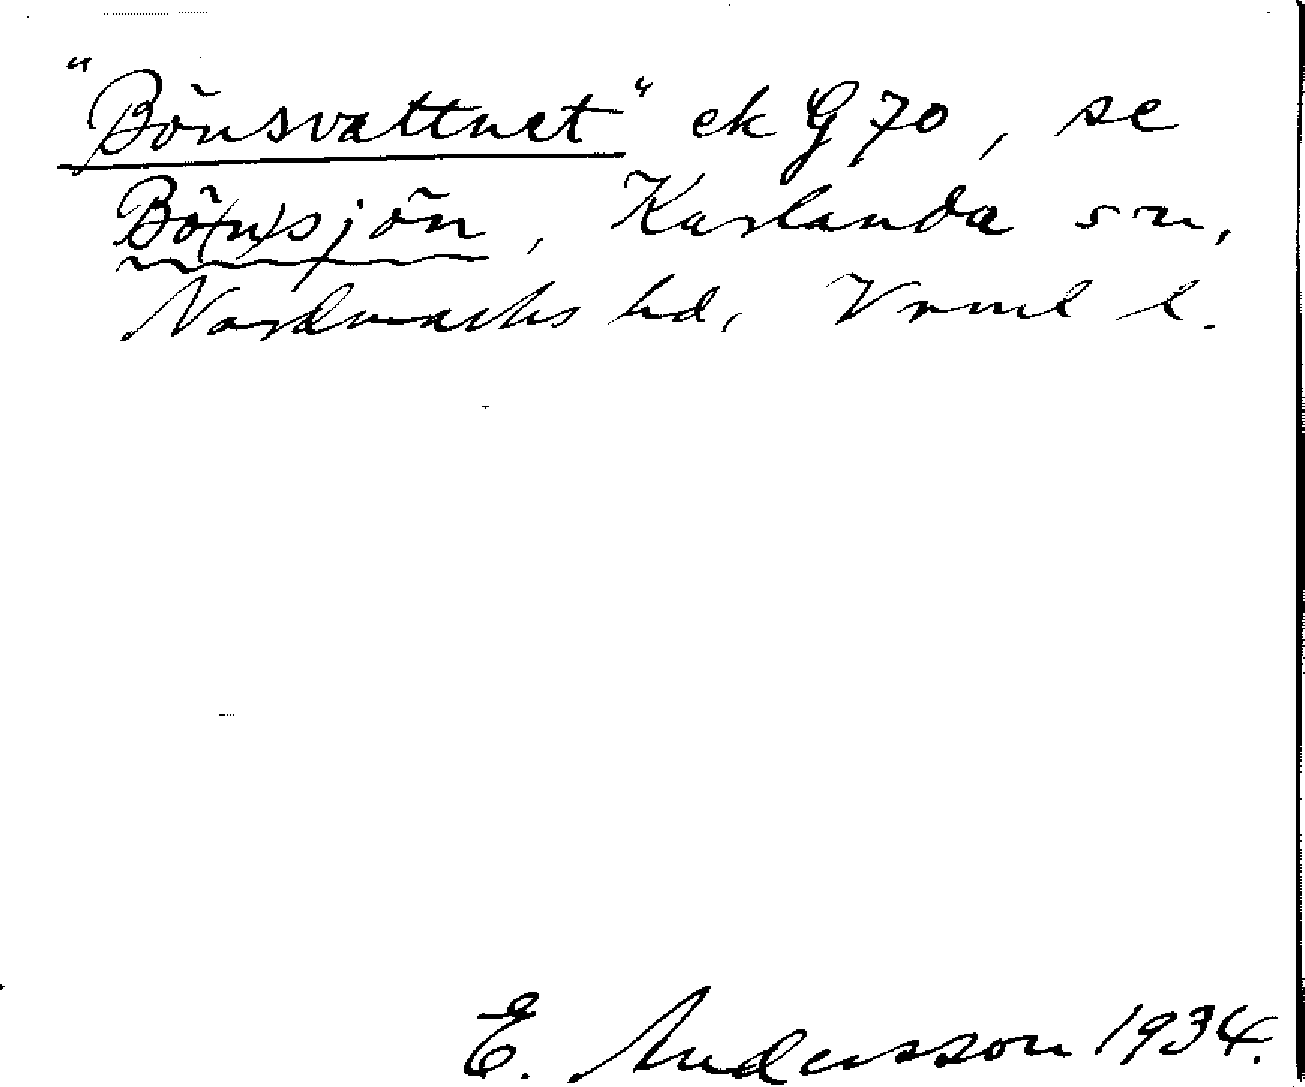 "Bönsvattnet" ek G 70, se
Bö(n)sjön, Karlanda sn,
Nordmarks hd, Vrml l.
E. Andersson 1934.